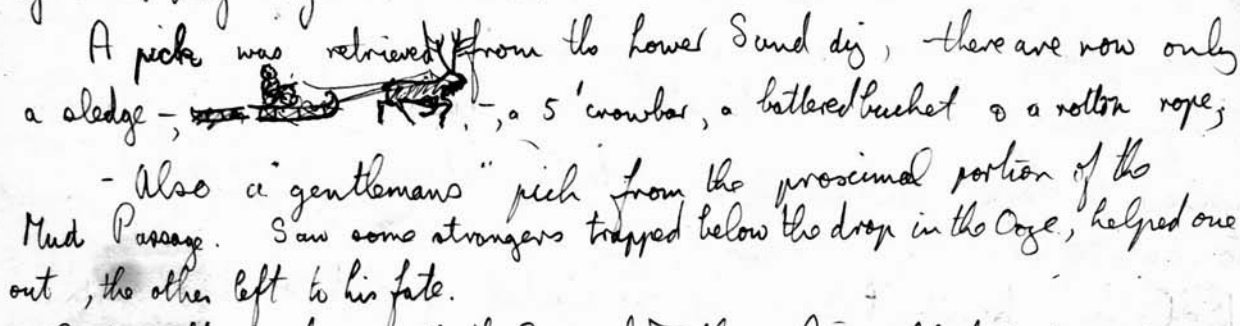 A pick was retrieved from the Lower Sand dig, there are now only
a sledge -, -, a 5' crowbar, a battered bucket & a rotten rope;
- Also a "gentlemans" pick from the proximal portion of the
Mud Passage. Saw some strangers trapped below the drop in the Ooze, helped one
out, the other left to his fate.